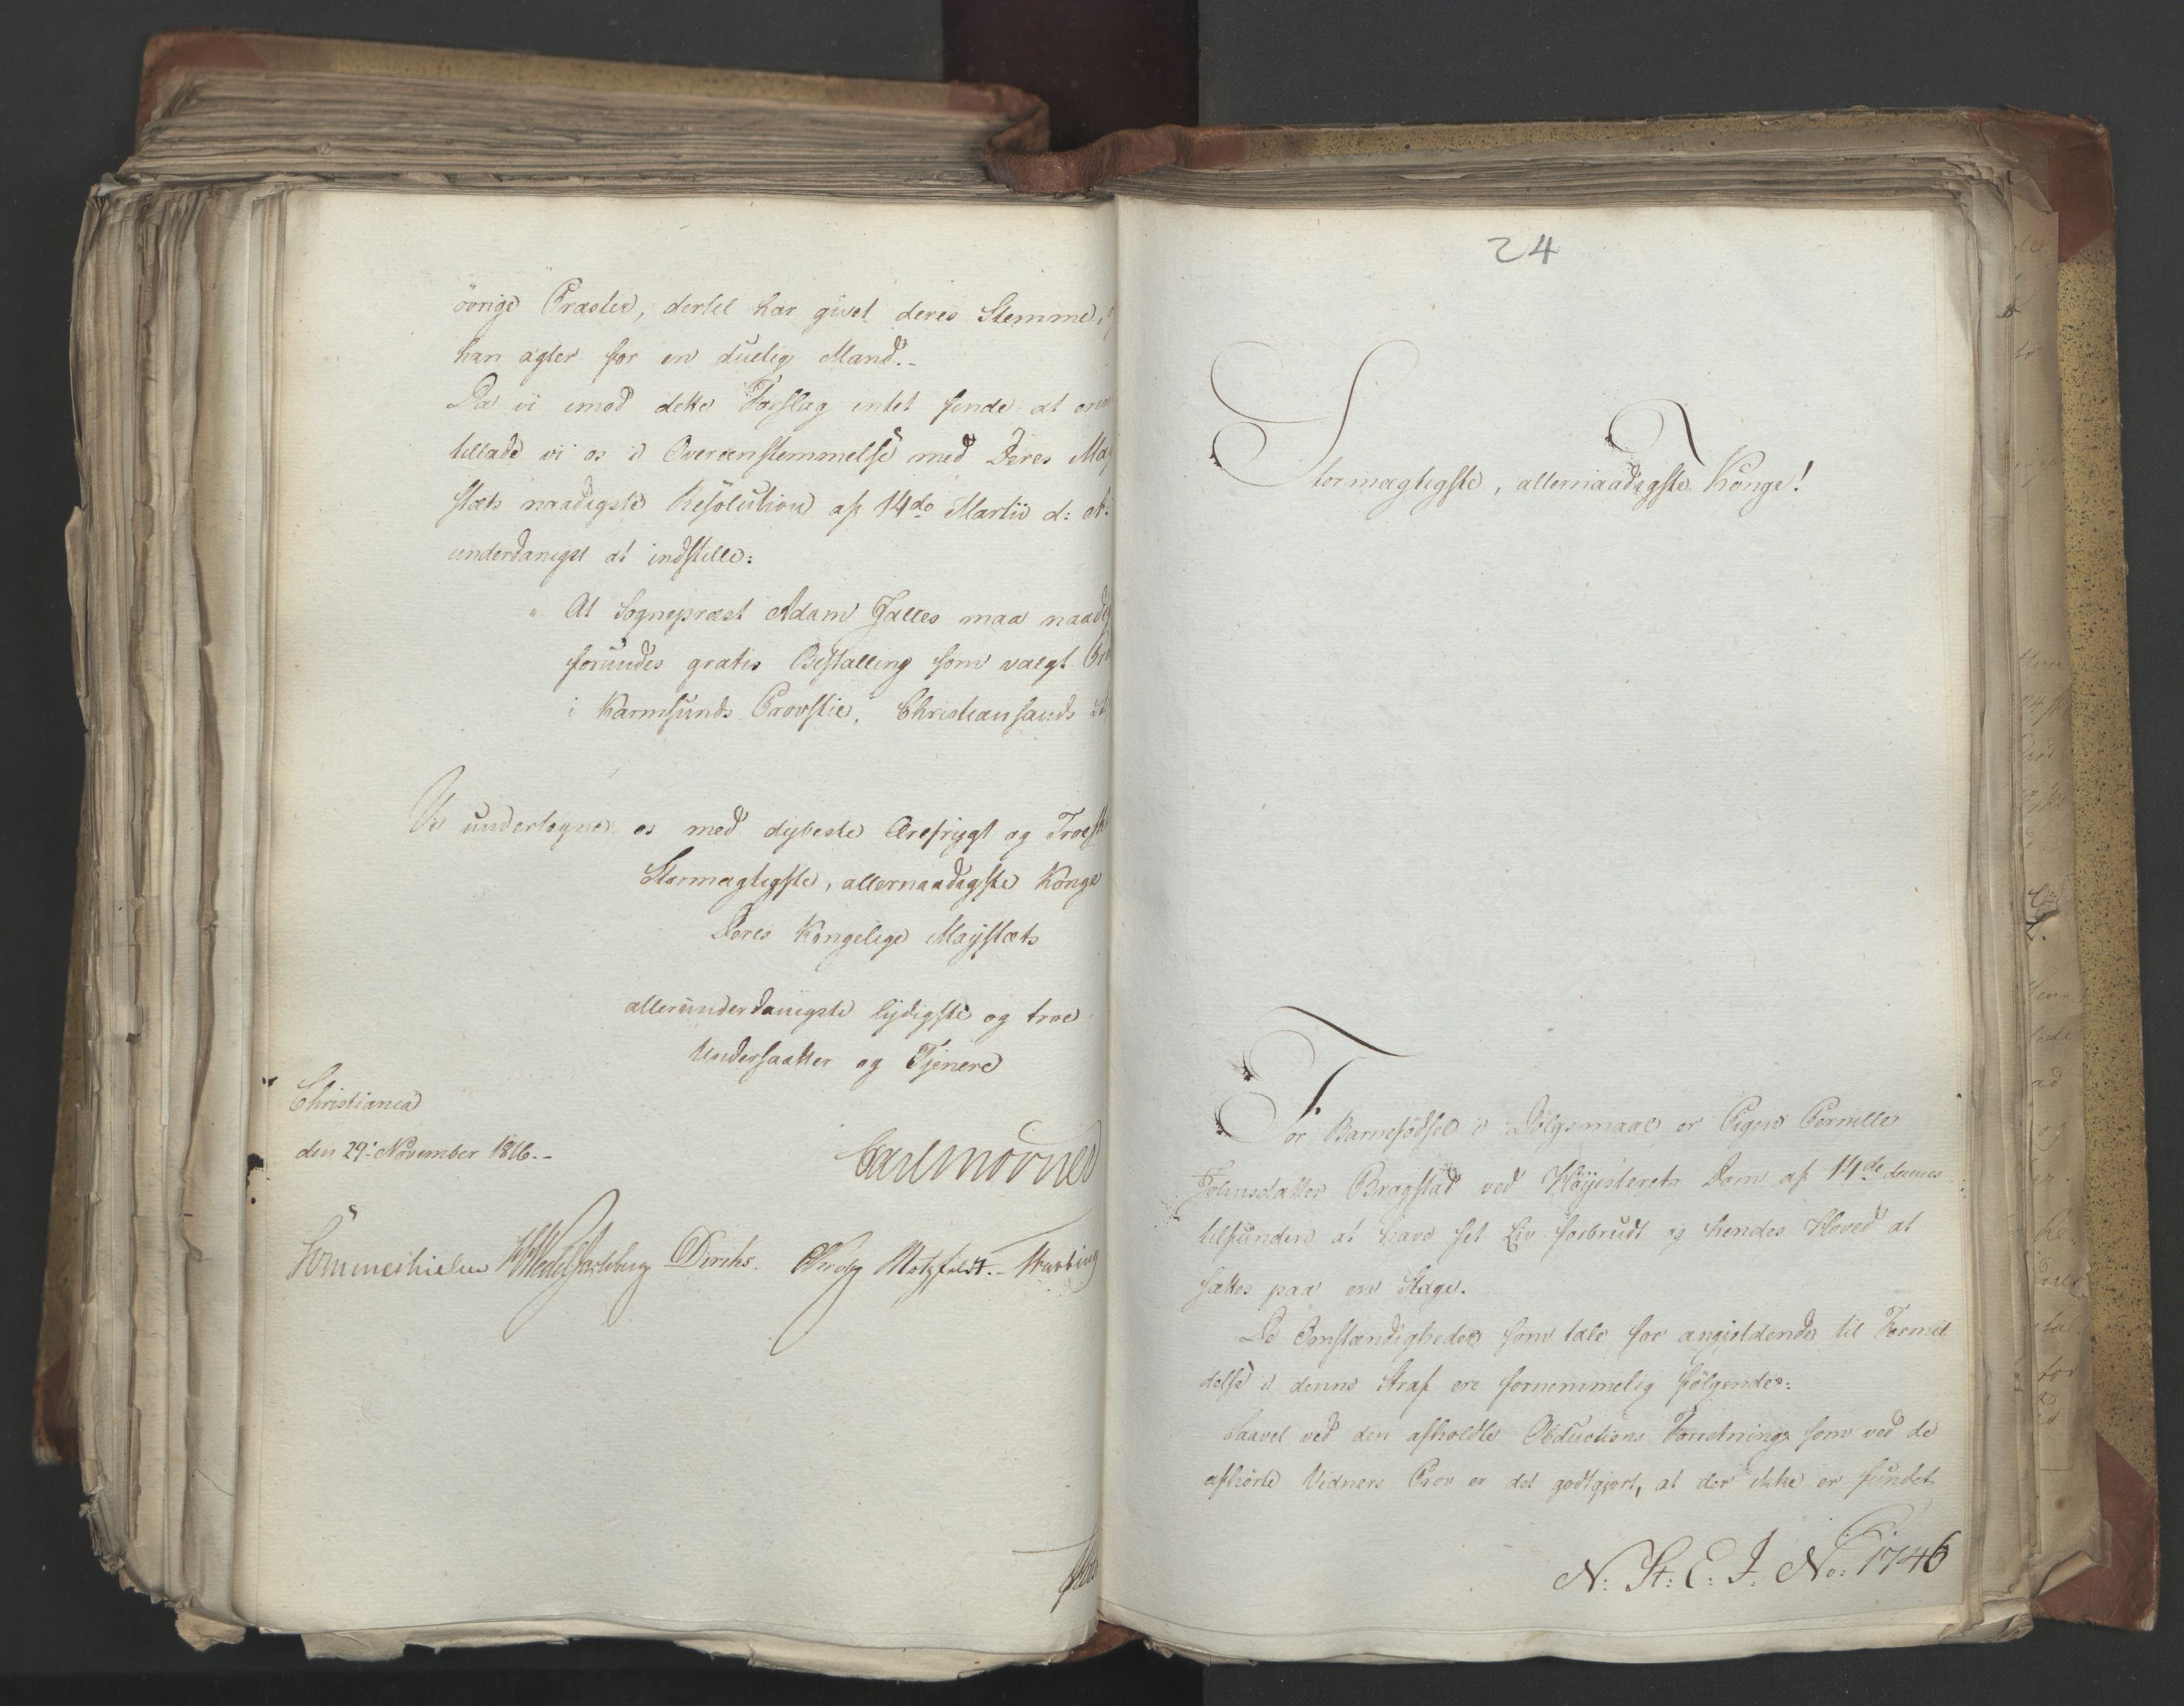 øvrige Præster, dertil har givet deres Stemme,
han agter for en duelig Mand.-
Da vi imod dette Forslag intet finde at
tillade vi os i Overeenstemmelse med Deres Maj
stæts naadigste Resolution af 14de Martii d: A:
underdanigst at indstille:
" At Sognepræst Adam Jalles maa naadig
forundes gratis Bestalling som valgt
i Karmsunds Provstie, Christiansands
Vi undertegne os med dybeste Ærefrygt og Troesk
Stormægtigste, allernaadigste Konge
Deres Kongelige Majestæts
allerunderdanigste lydigste og troe
Undersaatter og Tjenere
Christiania
den 29: November 1816.-
Carl Mörner
Sommerhielm HWedelJarlsberg Diriks. Krogh Motzfeldt.-
24
Stormægtigste, allernaadigste Konge!
For Barnefødsel i Dølgsmaal er Pigen Pernille
Johnsdatter Bragstad ved Høyesterets Dom af 14de dennes
tilfunden at have sit Liv forbrudt og hendes Hoved at
sættes paa en Stage.
De Omstændigheder som tale for angjeldende til Formil
delse i denne Straf ere fornemmelig følgende:
Saavel ved den afholdte Obductions Forretning, som ved de
afhørte Vidners Prov er det godtgjort, at der ikke er fundet
N: St: E: J: No: 1746